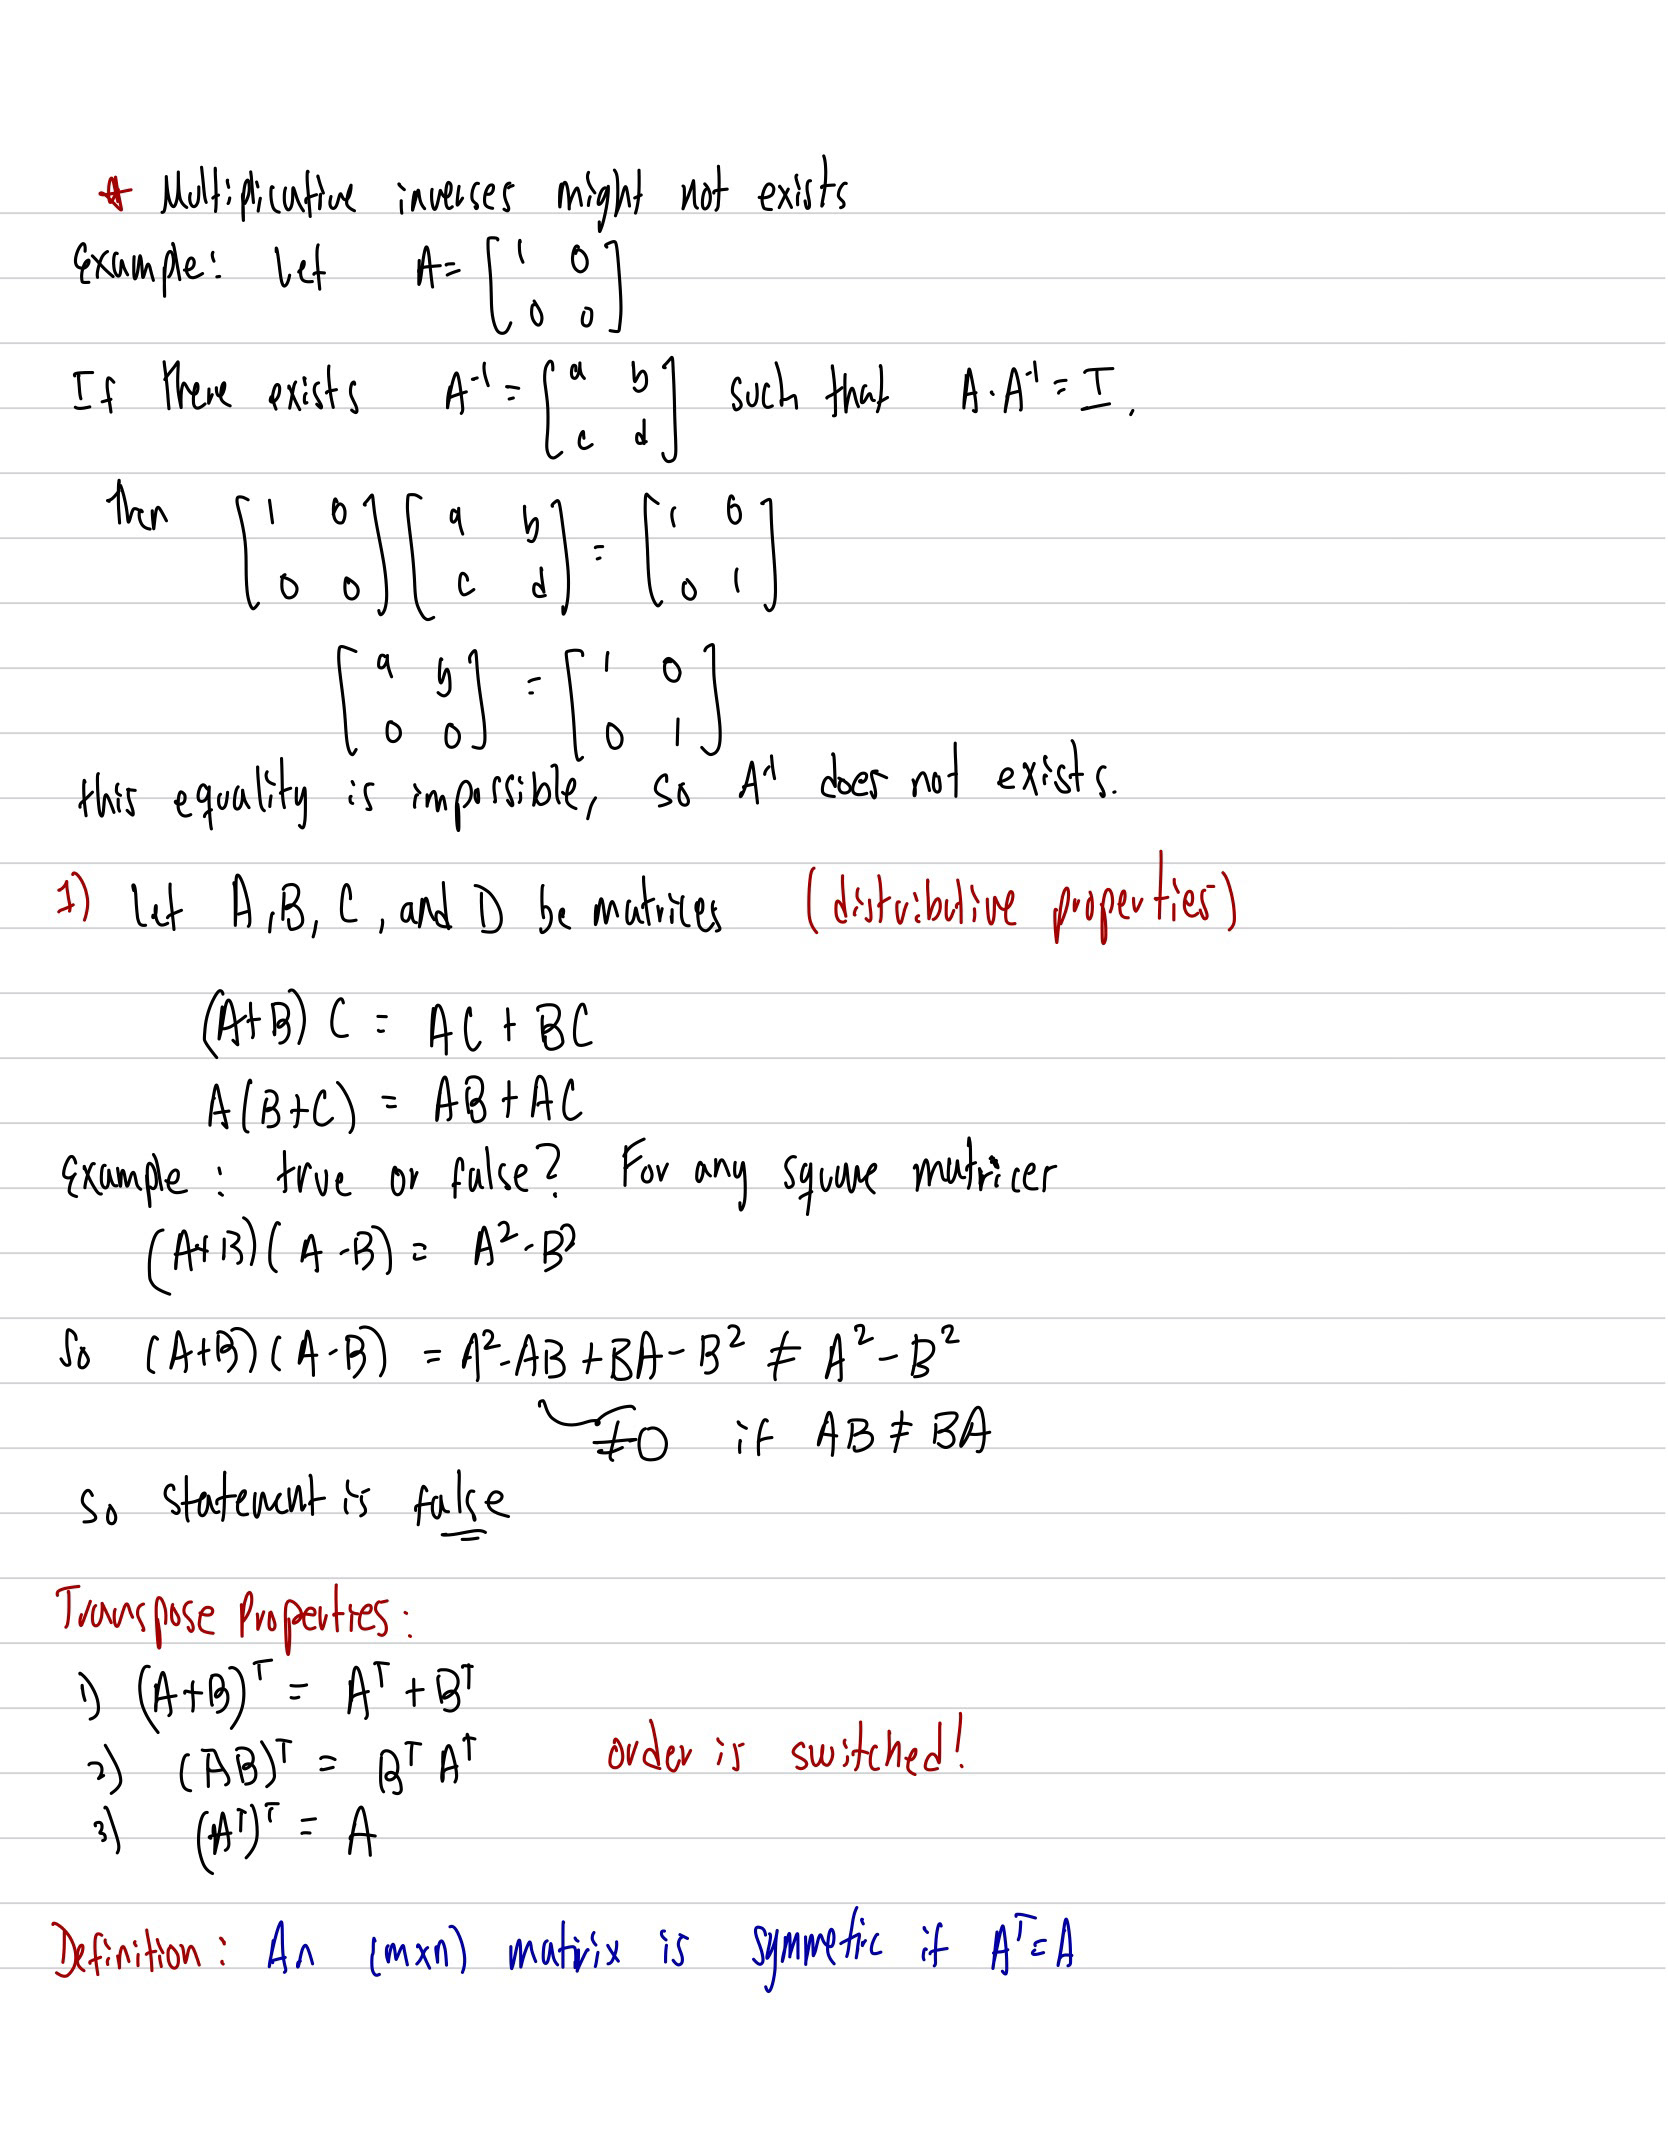 * Multiplicative inverses might not exists
Example: Let A = [1 0; 0 0]
If there exists A⁻¹ = [a b; c d] such that A·A⁻¹ = I,
then [1 0; 0 0] [a b; c d] = [1 0; 0 1]
[a b; 0 0] = [1 0; 0 1]
this equality is impossible, so A⁻¹ does not exists.
1) Let A, B, C, and D be matrices (distributive properties)
(A+B) C = AC + BC
A(B+C) = AB + AC
Example: true or false? For any square matrices
(A+B)(A-B) = A² - B²
So (A+B)(A-B) = A² - AB + BA - B² ≠ A² - B²
≠0 if AB ≠ BA
So statement is false
Transpose Properties:
1) (A+B)ᵀ = Aᵀ + Bᵀ
2) (AB)ᵀ = Bᵀ Aᵀ order is switched!
3) (Aᵀ)ᵀ = A
Definition: An (mxn) matrix is symmetic if Aᵀ = A